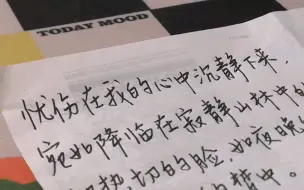 TODAY MOOD
忧伤在我的心中沉静下来,
宛如降临在寂静山林中的
热切的脸,如夜晚
梦中